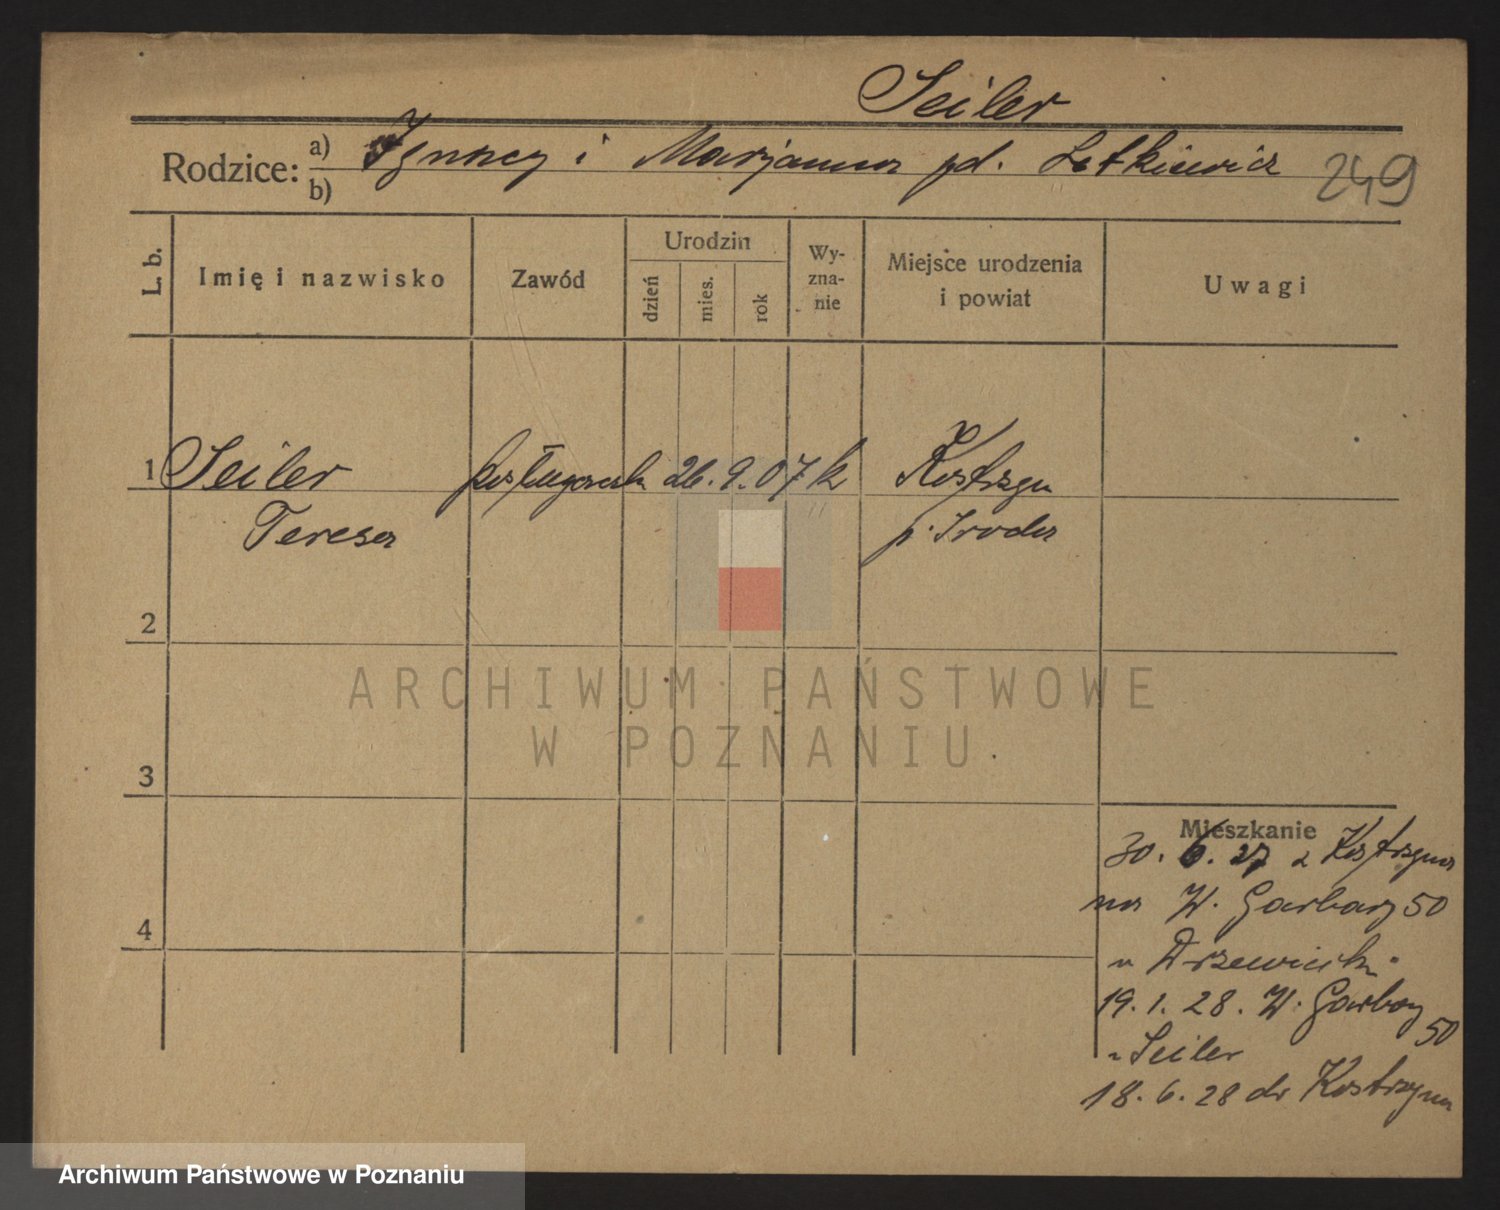 Seiler
Rodzice: a) Ignacy i Marjanna pd. Letkiewicz
b)
249
L. b.
Imię i nazwisko
Zawód
Urodzin
dzień
mies.
rok
Wy-
zna-
nie
Miejsce urodzenia
i powiat
Uwagi
1 Seiler posługaczk 26. 9. 07 k Kostrzyn
Teresa p. Środa
2
3
4
ARCHIWUM PAŃSTWOWE
W POZNANIU
Mieszkanie
30. 6. 27 z Kostrzyna
na W. Garbary 50
u Drzewieck.
19. 1. 28. W. Garbary
50
u Seiler
18. 6. 28 do Kostrzyna
Archiwum Państwowe w Poznaniu